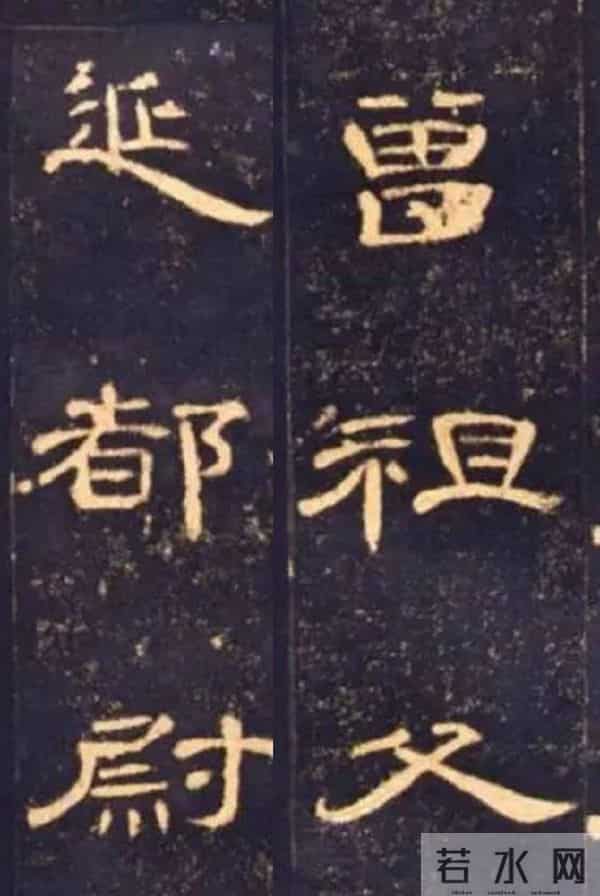 曾祖父
延都尉
若水网